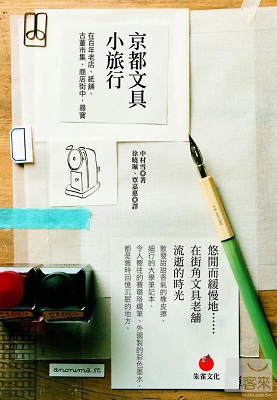 京都文具
小旅行
在百年老店、紙舖、
古董市集、商店街中，尋寶
中村雪◎著
徐曉珮、覃嘉惠◎譯
悠閒而緩慢地……
在街角文具老舖
流逝的時光
散發甜甜香氣的橡皮擦、
細行的大學筆記本、
令人嚮往的賽璐珞鐵筆、外國製的彩色墨水，
都是舊時回憶沉眠的地方。
朱雀文化
anonima st.
博客來